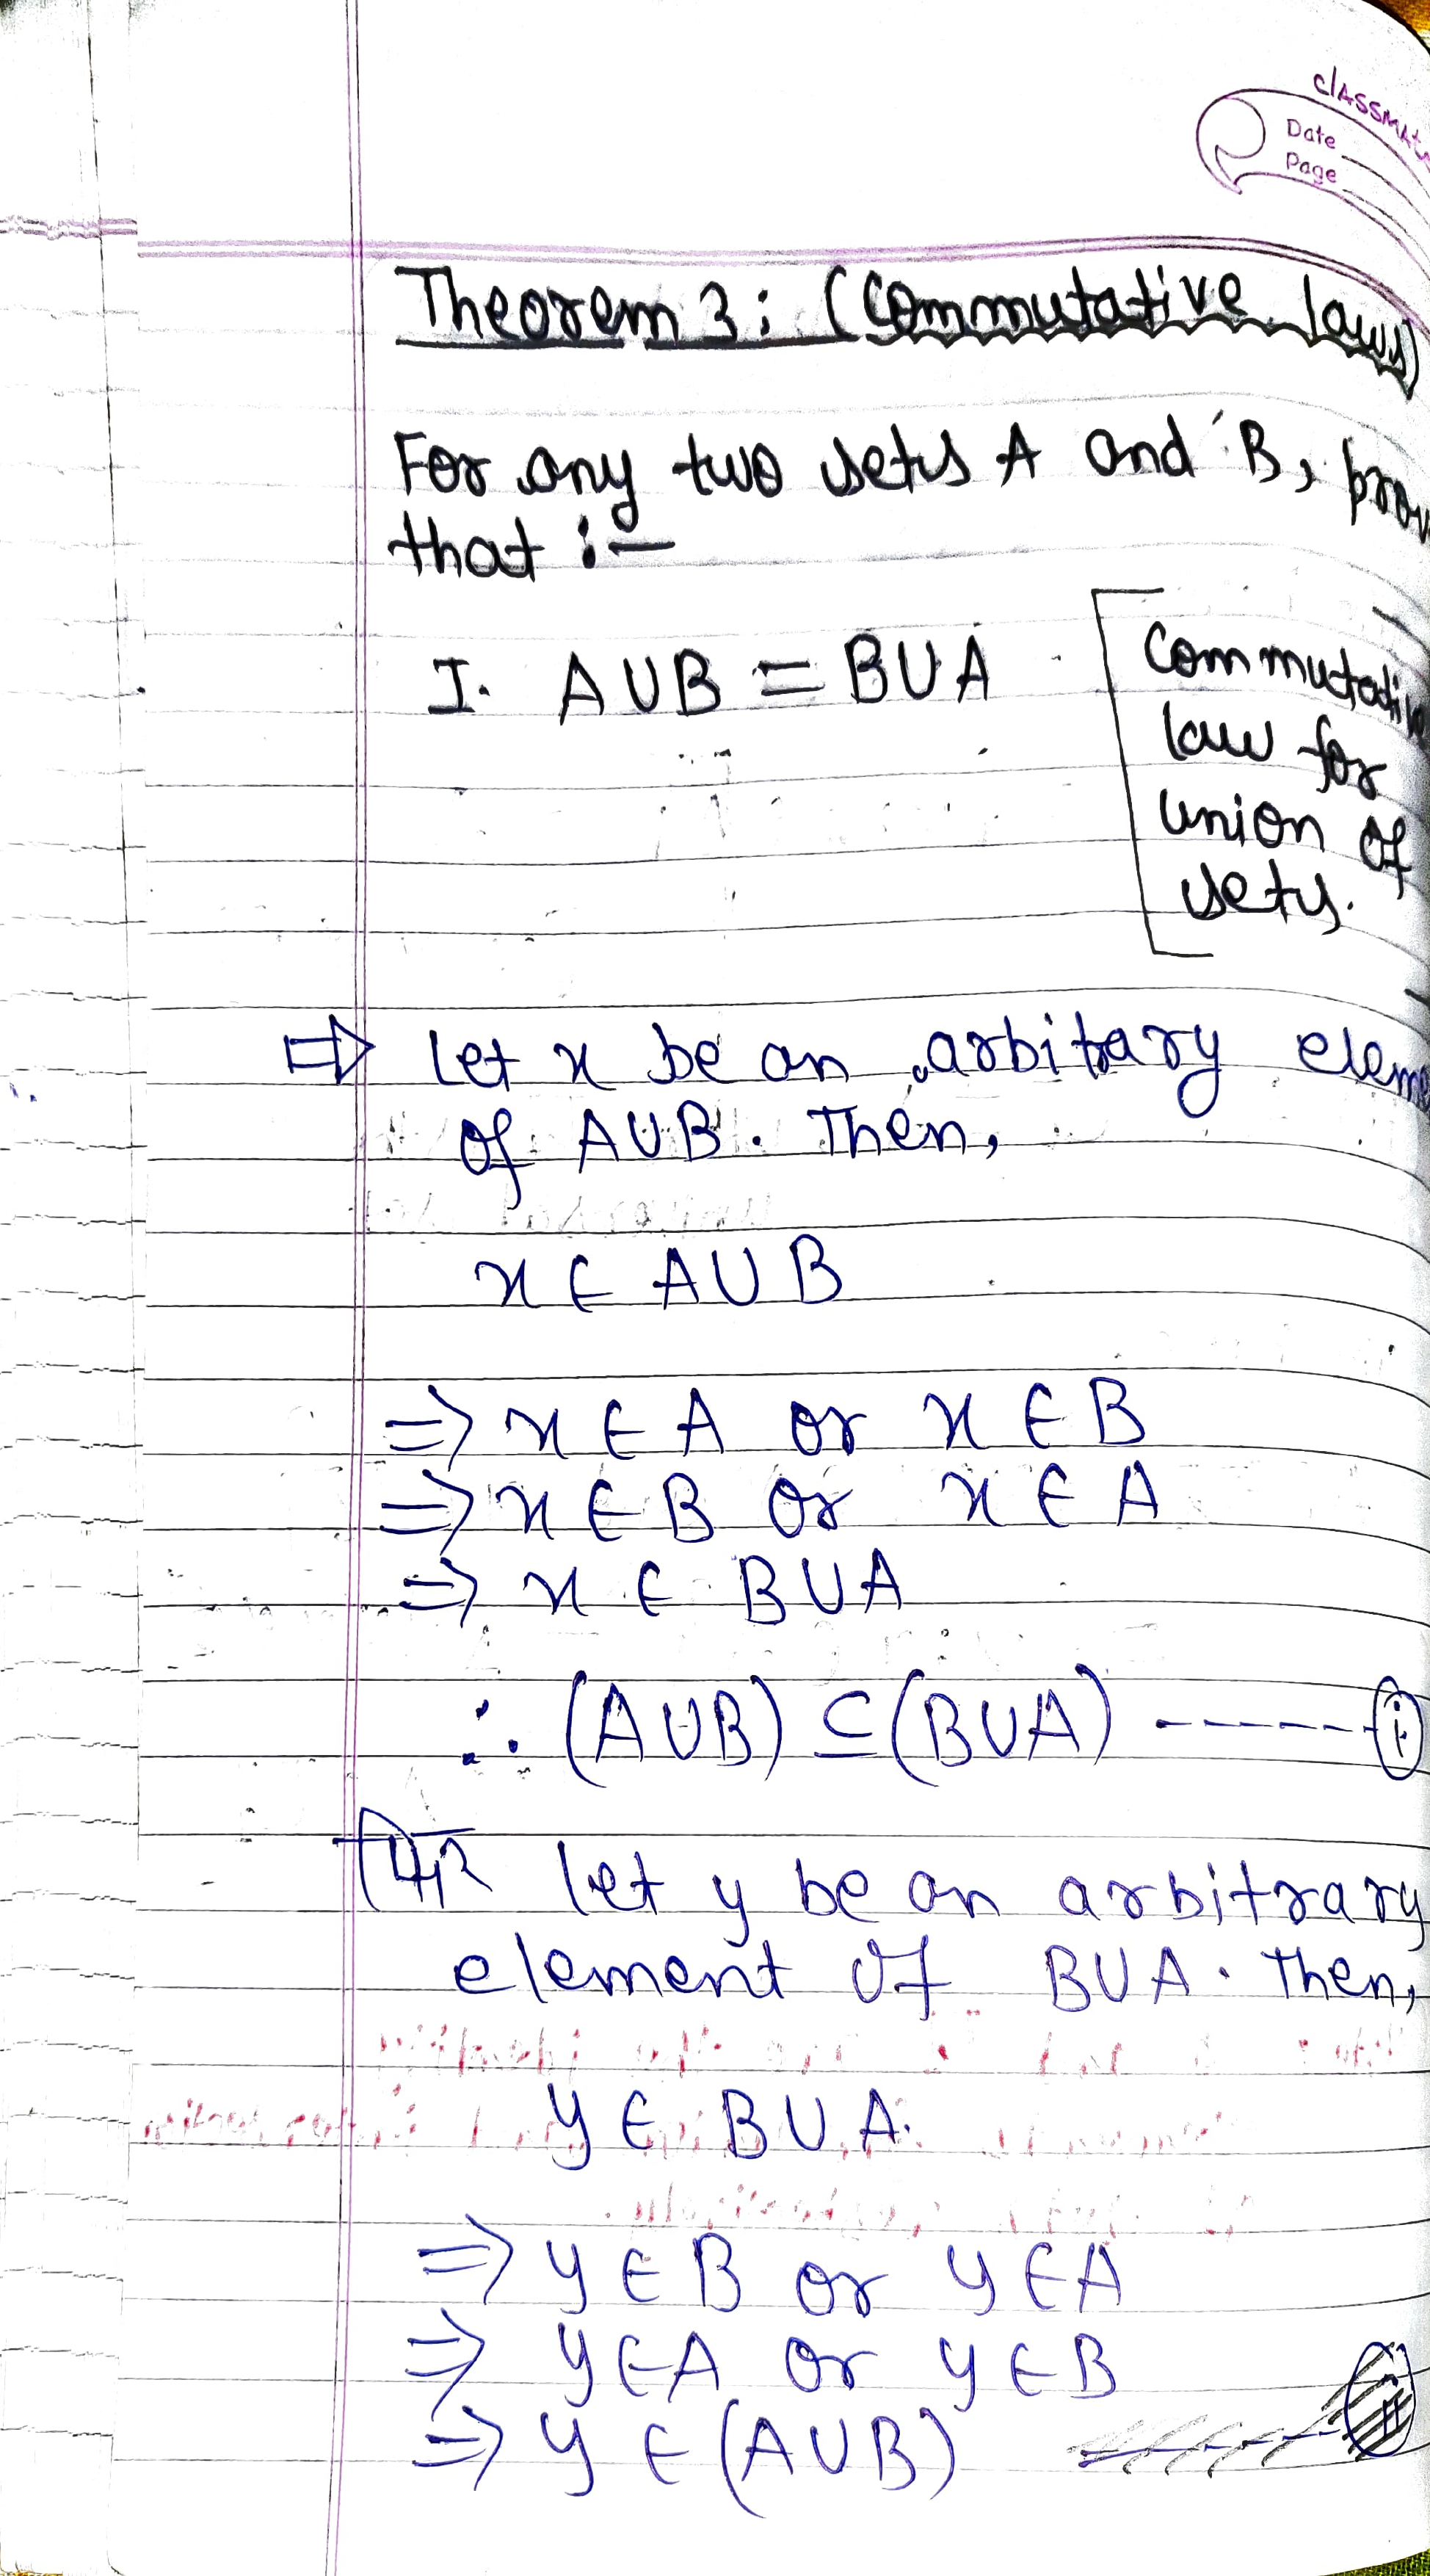 classmate
Date
Page
Theorem 3: (Commutative laws)
For any two sets A and B, prov
that :-
I. A∪B = B∪A
Commutativ
law for
union of
sets.
⇒ Let x be an arbitrary eleme
of A∪B. Then,
x ∈ A∪B
⇒ x ∈ A or x ∈ B
⇒ x ∈ B or x ∈ A
⇒ x ∈ B∪A
∴ (A∪B) ⊆ (B∪A) ------ (i)
फिर let y be an arbitrary
element of B∪A. Then,
y ∈ B∪A.
⇒ y ∈ B or y ∈ A
⇒ y ∈ A or y ∈ B
⇒ y ∈ (A∪B)